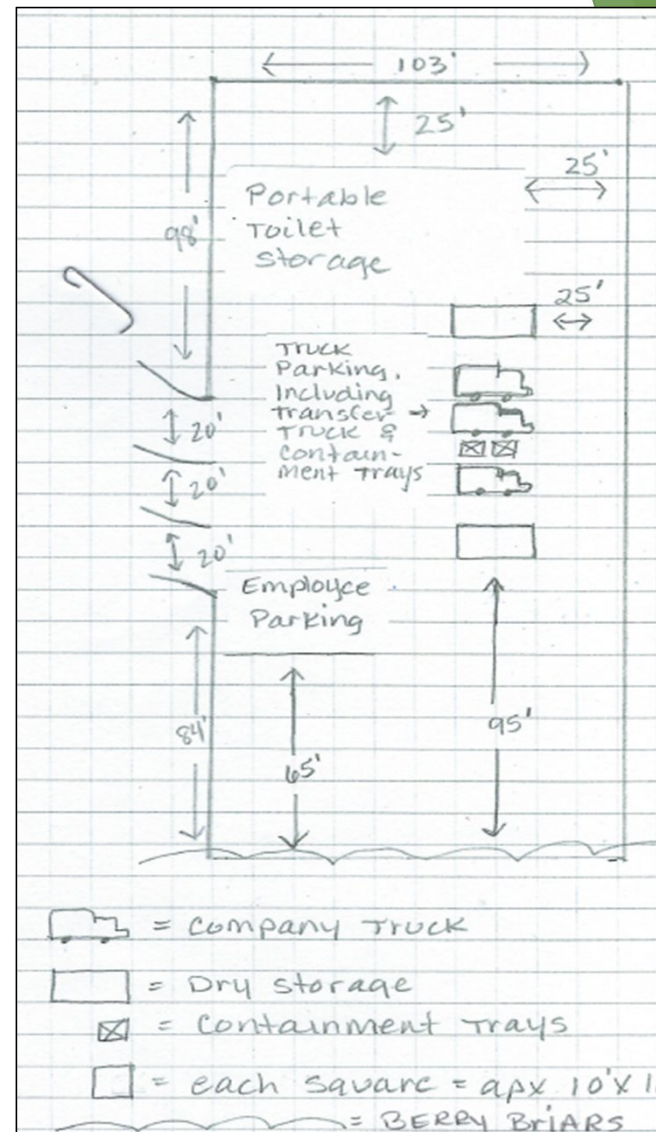 103'
25'
25'
Portable
Toilet
Storage
98'
25'
Truck
Parking,
Including
transfer
Truck &
Contain-
ment Trays
20'
20'
20'
Employee
Parking
84'
65'
95'
= Company Truck
= Dry storage
= Containment Trays
= each square = apx 10'x1
= BERRY BriARS